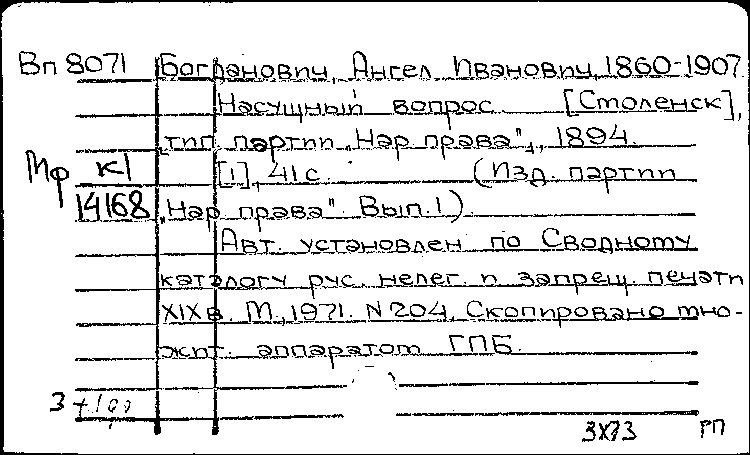 Вп 8071 Богданович, Ангел Иванович, 1860-1907.
Насущный вопрос. [Смоленск],
тип. партии „Нар. права", 1894.
Мф К1 [1], 41 с. (Изд. партии
14168 „Нар. права". Вып. 1).
Авт. установлен по Сводному
каталогу рус. нелег. и запрещ. печати
XIX в. М., 1971. N 204. Скопировано мно-
жит. аппаратом ГПБ.
3
3X73 РП